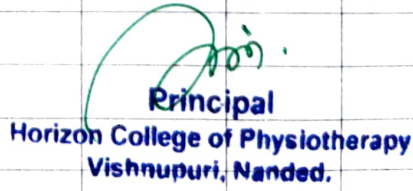 Principal
Horizon College of Physiotherapy
Vishnupuri, Nanded.